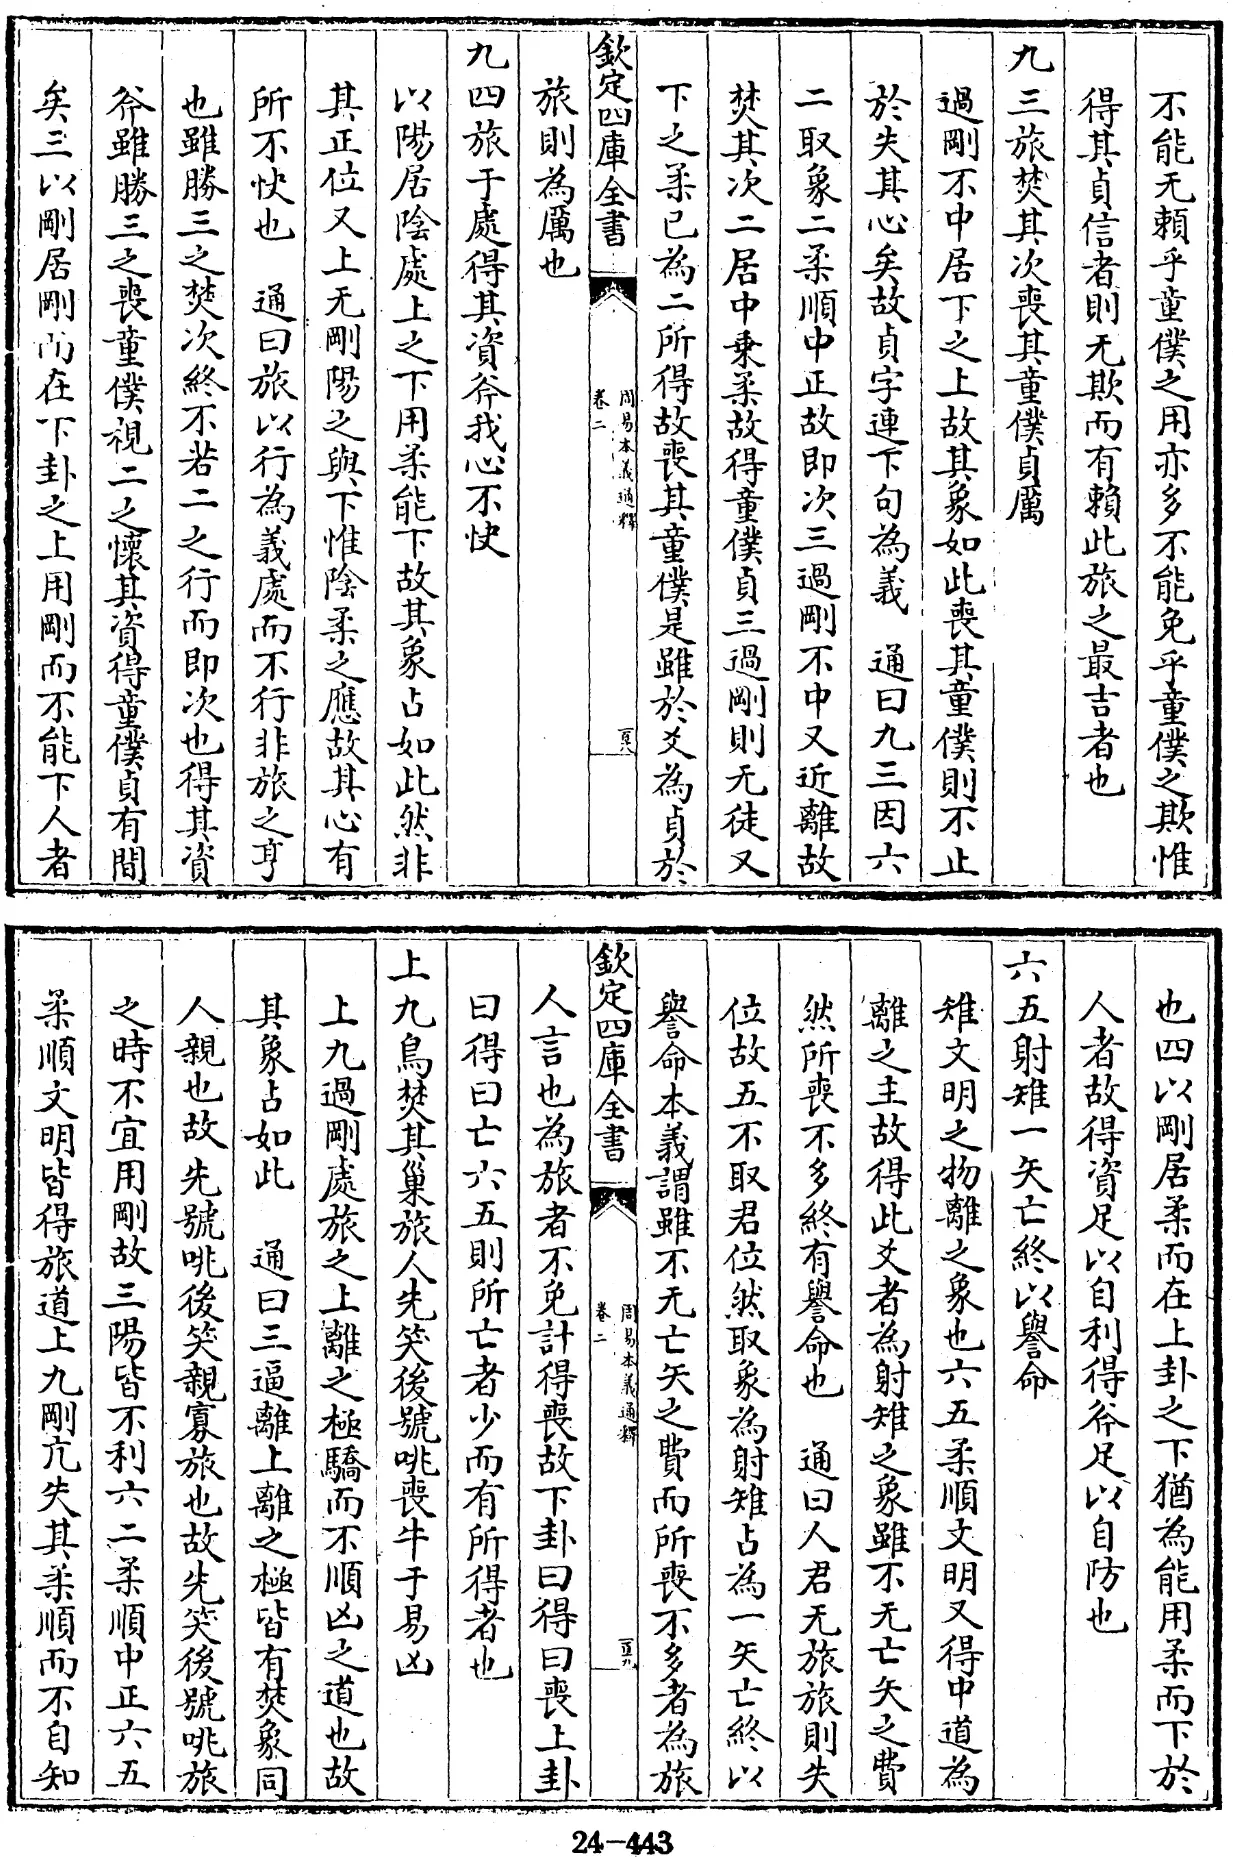 不能无賴乎童僕之用亦多不能免乎童僕之欺惟
得其貞信者則无欺而有賴此旅之最吉者也
九三旅焚其次喪其童僕貞厲
過剛不中居下之上故其象如此喪其童僕則不止
於失其心矣故貞字連下句為義　通曰九三因六
二取象二柔順中正故即次三過剛不中又近離故
焚其次二居中乗柔故得童僕貞三過剛則无徒又
下之柔已為二所得故喪其童僕是雖於爻為貞於
欽定四庫全書
周易本義通釋
卷二
百八
旅則為厲也
九四旅于處得其資斧我心不快
以陽居陰處上之下用柔能下故其象占如此然非
其正位又上无剛陽之與下惟陰柔之應故其心有
所不快也　通曰旅以行為義處而不行非旅之亨
也雖勝三之焚次終不若二之行而即次也得其資
斧雖勝三之喪童僕視二之懷其資得童僕貞有間
矣三以剛居剛而在下卦之上用剛而不能下人者
也四以剛居柔而在上卦之下猶為能用柔而下於
人者故得資足以自利得斧足以自防也
六五射雉一矢亡終以譽命
雉文明之物離之象也六五柔順文明又得中道為
離之主故得此爻者為射雉之象雖不无亡矢之費
然所喪不多終有譽命也　通曰人君无旅旅則失
位故五不取君位然取象為射雉占為一矢亡終以
譽命本義謂雖不无亡矢之費而所喪不多者為旅
欽定四庫全書
周易本義通釋
卷二
百九
人言也為旅者不免計得喪故下卦曰得曰喪上卦
曰得曰亡六五則所亡者少而有所得者也
上九鳥焚其巢旅人先笑後號咷喪牛于易凶
上九過剛處旅之上離之極驕而不順凶之道也故
其象占如此　通曰三逼離上離之極皆有焚象同
人親也故先號咷後笑親寡旅也故先笑後號咷旅
之時不宜用剛故三陽皆不利六二柔順中正六五
柔順文明皆得旅道上九剛亢失其柔順而不自知
24-443